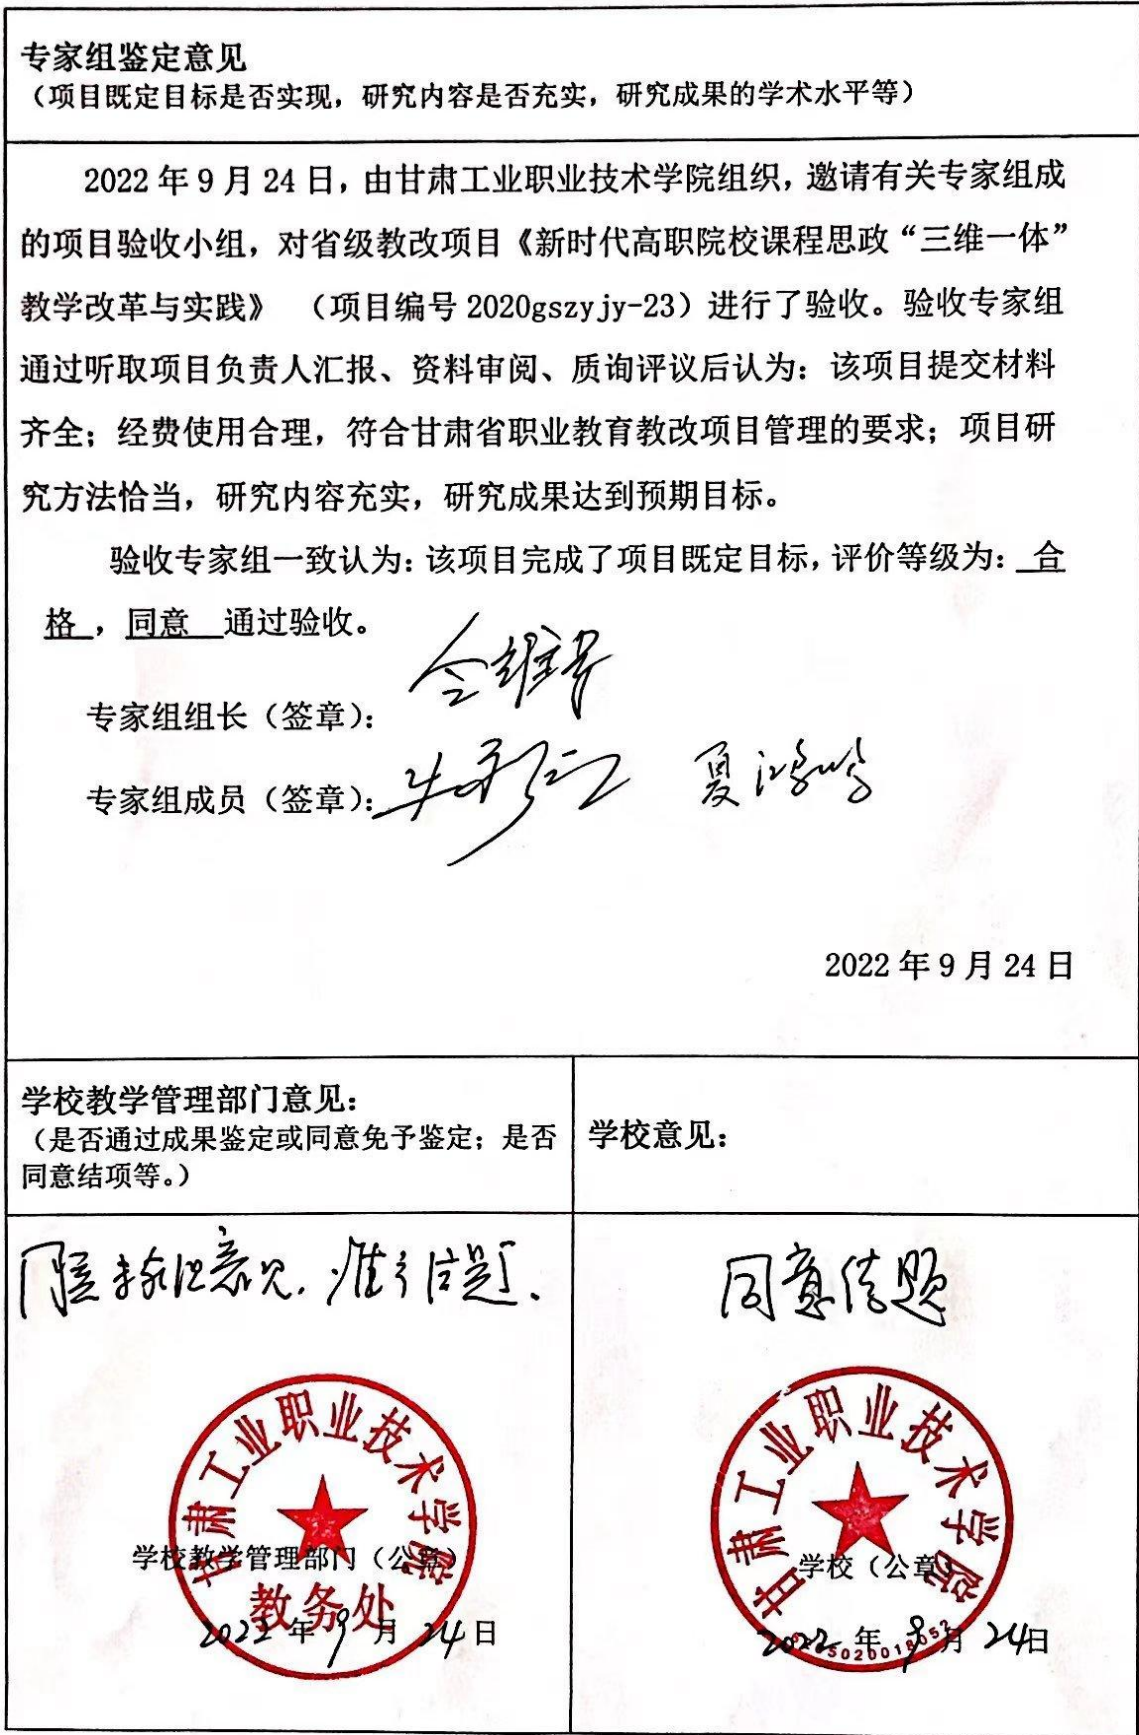 专家组鉴定意见
（项目既定目标是否实现，研究内容是否充实，研究成果的学术水平等）
2022年9月24日，由甘肃工业职业技术学院组织，邀请有关专家组成
的项目验收小组，对省级教改项目《新时代高职院校课程思政“三维一体”
教学改革与实践》 （项目编号2020gszyjy-23）进行了验收。验收专家组
通过听取项目负责人汇报、资料审阅、质询评议后认为：该项目提交材料
齐全；经费使用合理，符合甘肃省职业教育教改项目管理的要求；项目研
究方法恰当，研究内容充实，研究成果达到预期目标。
验收专家组一致认为：该项目完成了项目既定目标，评价等级为： 合
格 ，同意 通过验收。
专家组组长（签章）：
专家组成员（签章）：
2022年9月24日
学校教学管理部门意见：
（是否通过成果鉴定或同意免予鉴定；是否
同意结项等。）
学校意见：
同意专家组意见，准予结题。
同意结题
甘肃工业职业技术学院
学校教学管理部门（公章）
教务处
2022年9月24日
甘肃工业职业技术学院
学校（公章）
2022年9月24日